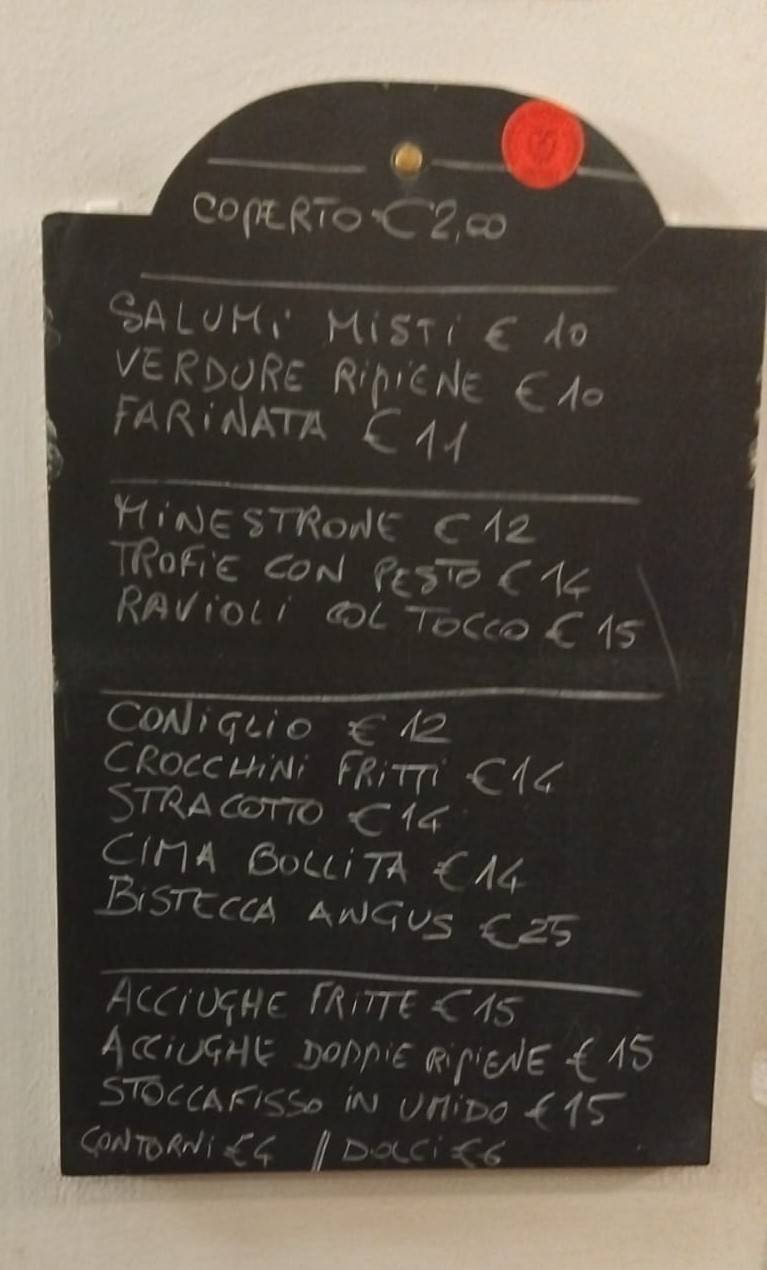 COPERTO €2,00
SALUMI MISTI € 10
VERDURE RIPIENE € 10
FARINATA € 11
MINESTRONE € 12
TROFIE CON PESTO € 14
RAVIOLI COL TOCCO € 15
CONIGLIO € 12
CROCCHINI FRITTI € 14
STRACOTTO € 14
CIMA BOLLITA € 14
BISTECCA ANGUS € 25
ACCIUGHE FRITTE € 15
ACCIUGHE DOPPIE RIPIENE € 15
STOCCAFISSO IN UMIDO € 15
CONTORNI €4 // DOLCI €6